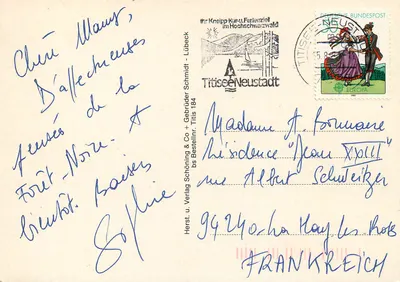 Chère Mamy,
D'affectueuses
pensées de la
Forêt-Noire. A
bientôt. Baisers
Sophie
Herst. u. Verlag Schöning & Co + Gebrüder Schmidt - Lübeck
bs Bestellnr. Titis 184
Ihr Kneipp-Kur u. Ferienziel
im Hochschwarzwald
Titisee-Neustadt
TITISEE-NEUSTADT
BUNDESPOST
Madame A.
Résidence "Jean XXIII"
rue Albert Schweitzer
94240 L'Hay les Roses
FRANKREICH